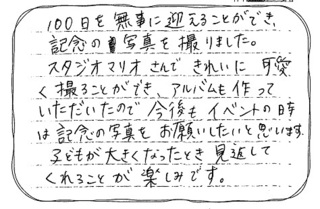 100日を無事に迎えることができ、
記念の写真を撮りました。
スタジオマリオさんできれいに可愛
く撮ることができ、アルバムも作って
いただいたので今後もイベントの時
は記念の写真をお願いしたいと思います。
子どもが大きくなったとき見返して
くれることが楽しみです。